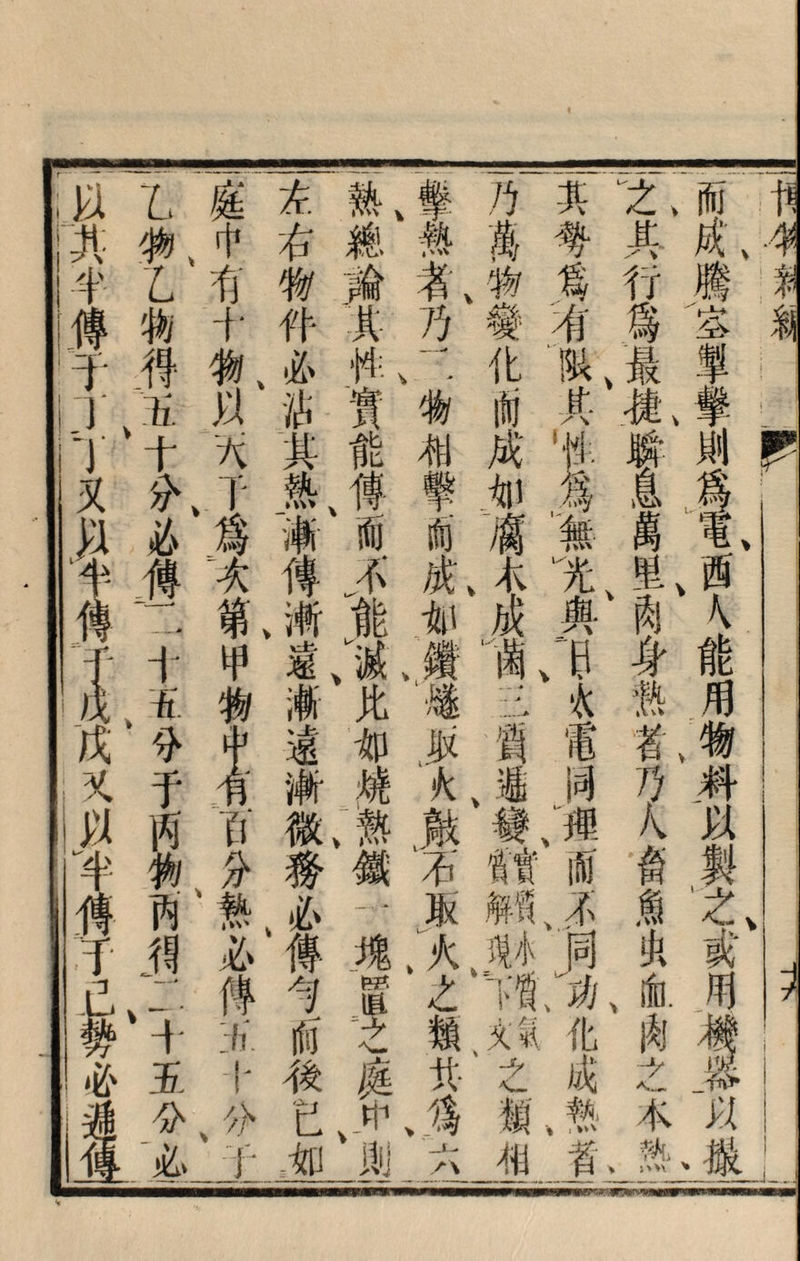 博物新編
而成、騰空掣擊則爲電、西人能用物料以製之、或用機器以撮
之、其行爲最捷、瞬息萬里、肉身熱者、乃人畜魚虫血肉之本熱、
其勢爲有限、其性爲無光、與日火電同理而不同功、化成熱者、
乃萬物變化而成、如腐木成菌、三質遞變、實質、水質、氣質解現下文之類、相
擊熱者、乃二物相擊而成、如鑽燧取火、敲石取火之類、共爲六
熱、總論其性、實能傳而不能滅、比如燒熱鐵一塊、置之庭中、則
左右物件必沾其熱、漸傳漸遠、漸遠漸微、務必傳勻而後已、如
庭中有十物、以天干爲次第、甲物中有百分熱、必傳五十分于
乙物、乙物得五十分、必傳二十五分于丙物、丙得二十五分、必
以其半傳于丁、丁又以半傳于戊、戊又以半傳于己、勢必遞傳